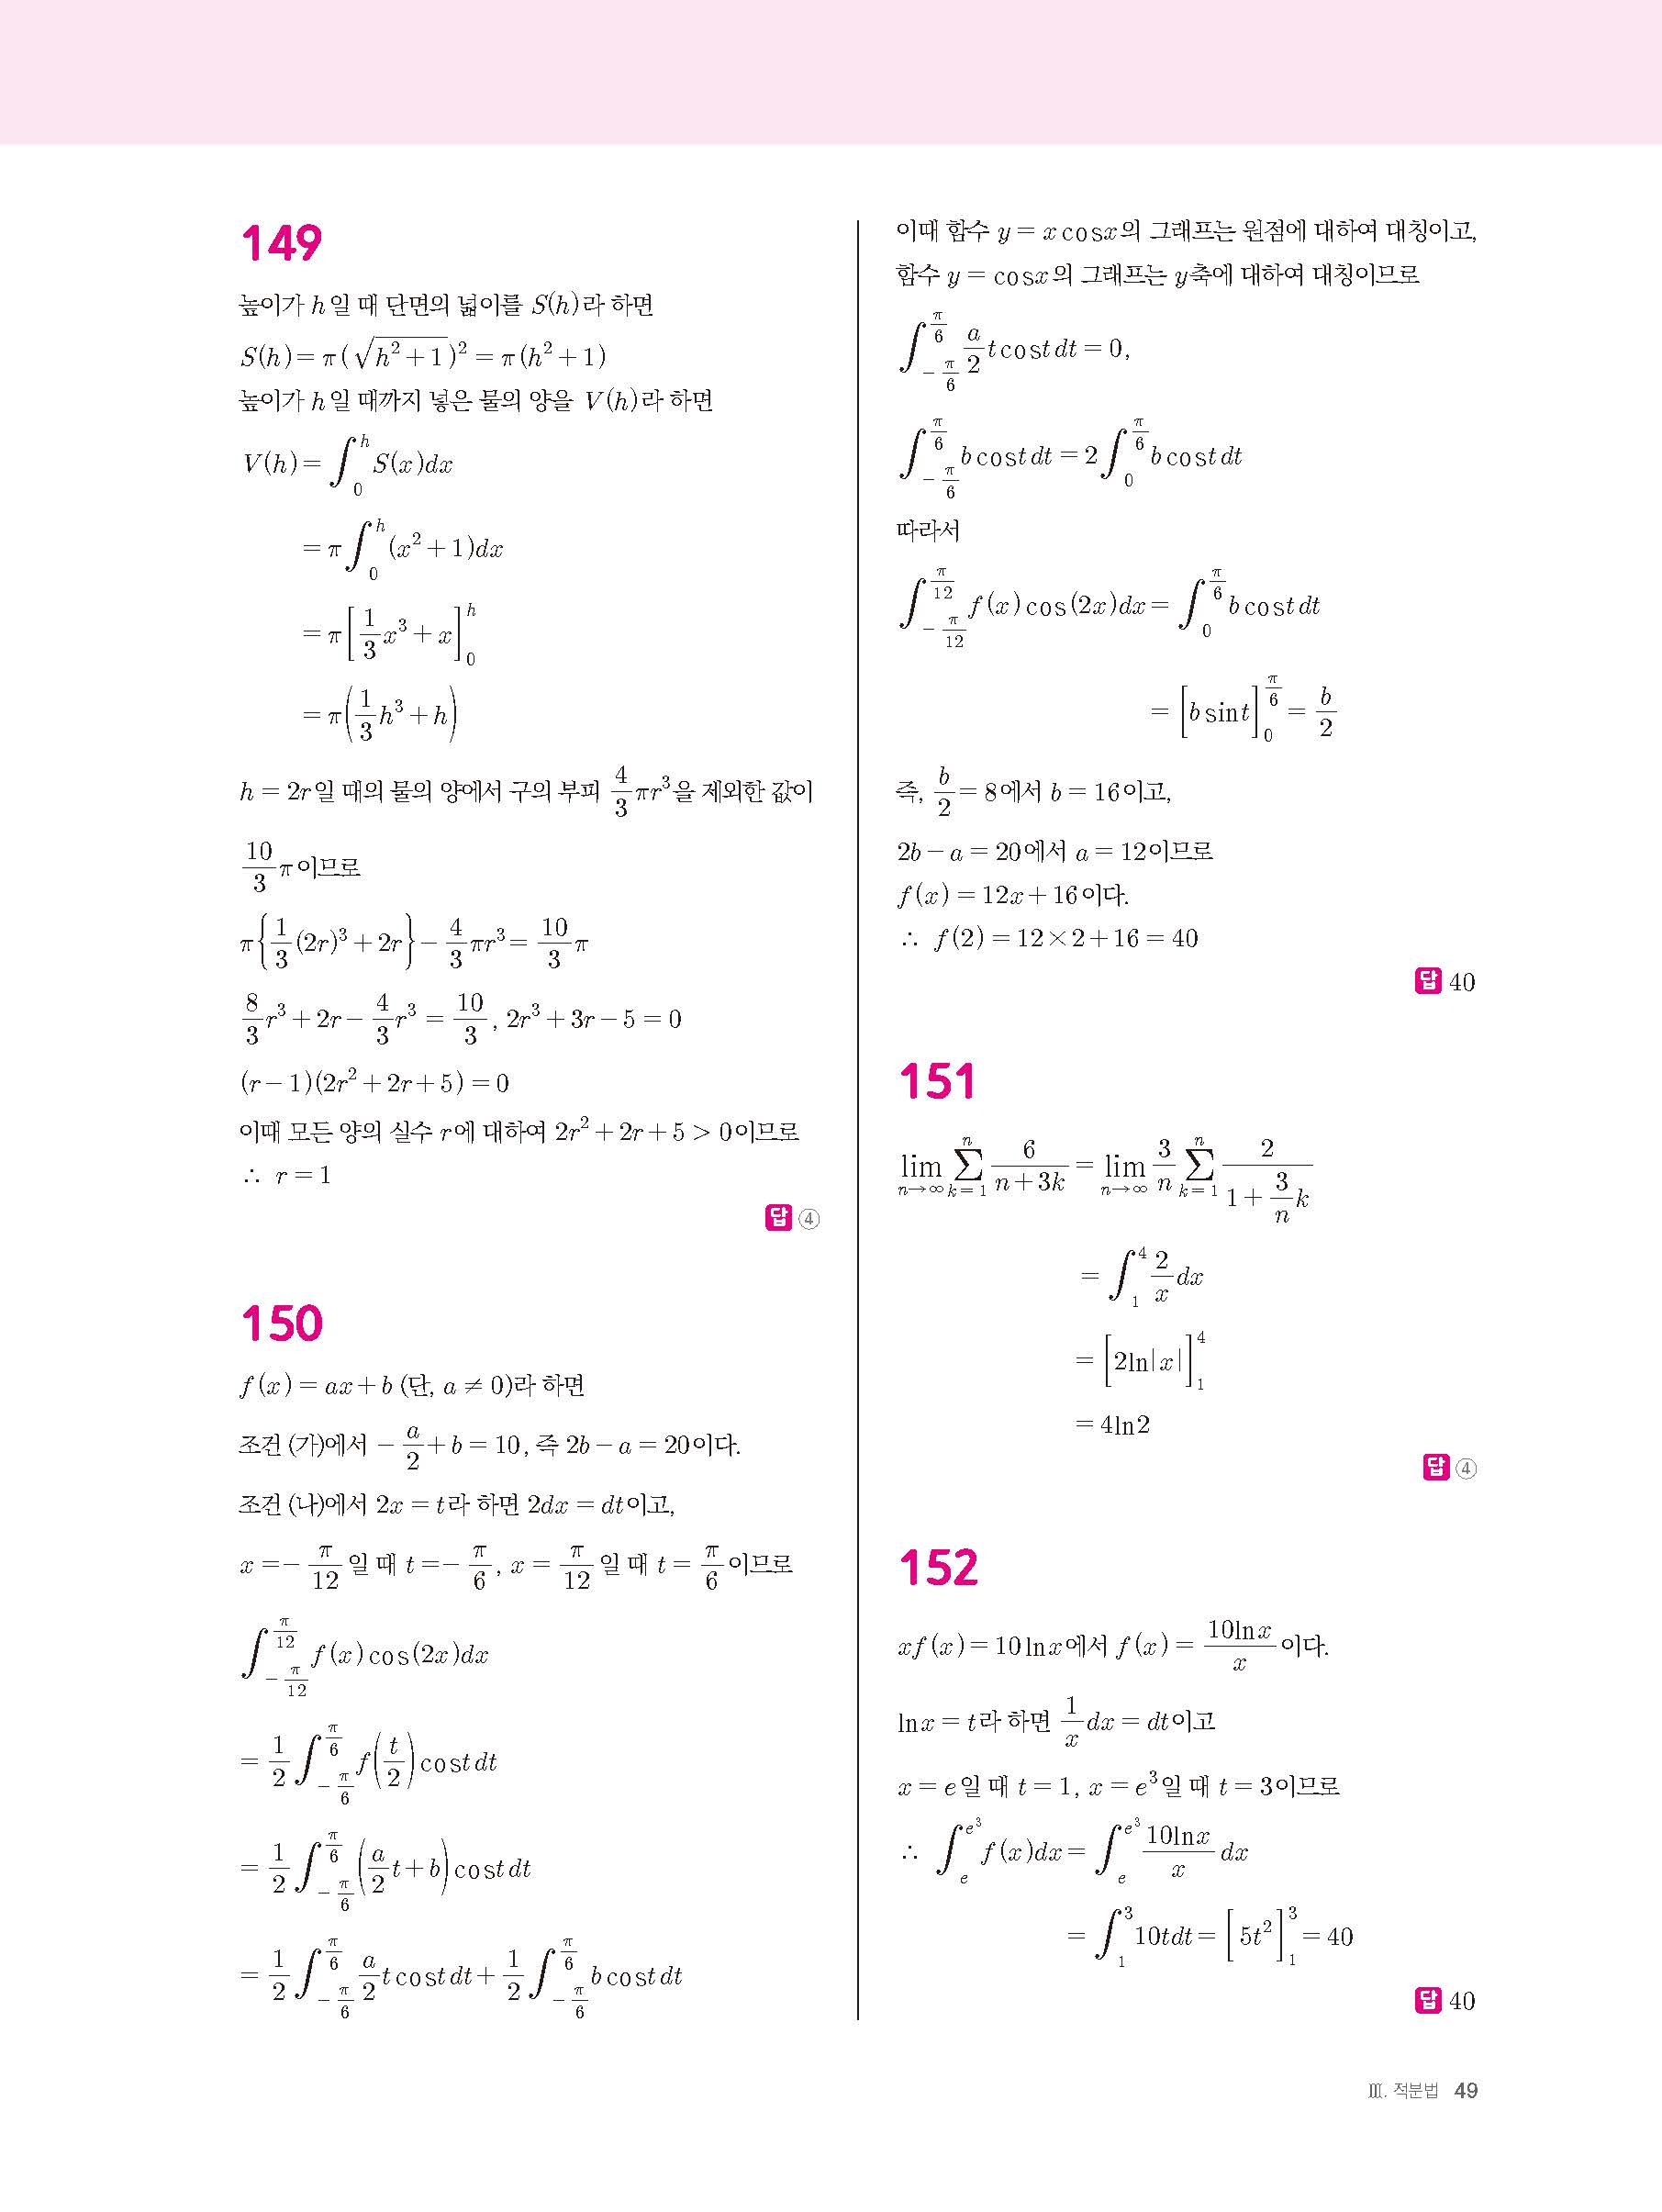 149
높이가 h일 때 단면의 넓이를 S(h)라 하면
S(h)=π(√(h²+1))²=π(h²+1)
높이가 h일 때까지 넣은 물의 양을 V(h)라 하면
V(h)=∫₀ʰ S(x)dx
=π∫₀ʰ (x²+1)dx
=π[1/3 x³+x]₀ʰ
=π(1/3 h³+h)
h=2r일 때의 물의 양에서 구의 부피 4/3 πr³을 제외한 값이
10/3 π이므로
π{1/3 (2r)³+2r}-4/3 πr³=10/3 π
8/3 r³+2r-4/3 r³=10/3, 2r³+3r-5=0
(r-1)(2r²+2r+5)=0
이때 모든 양의 실수 r에 대하여 2r²+2r+5>0이므로
∴ r=1
답 ④
150
f(x)=ax+b (단, a≠0)라 하면
조건 (가)에서 -a/2+b=10, 즉 2b-a=20이다.
조건 (나)에서 2x=t라 하면 2dx=dt이고,
x=-π/12일 때 t=-π/6, x=π/12일 때 t=π/6이므로
∫_{-π/12}^{π/12} f(x)cos(2x)dx
=1/2 ∫_{-π/6}^{π/6} f(t/2)cost dt
=1/2 ∫_{-π/6}^{π/6} (a/2 t+b)cost dt
=1/2 ∫_{-π/6}^{π/6} a/2 t cost dt+1/2 ∫_{-π/6}^{π/6} b cost dt
이때 함수 y=x cosx의 그래프는 원점에 대하여 대칭이고,
함수 y=cosx의 그래프는 y축에 대하여 대칭이므로
∫_{-π/6}^{π/6} a/2 t cost dt=0,
∫_{-π/6}^{π/6} b cost dt=2∫_{0}^{π/6} b cost dt
따라서
∫_{-π/12}^{π/12} f(x)cos(2x)dx=∫_{0}^{π/6} b cost dt
=[b sint]_{0}^{π/6}=b/2
즉, b/2=8에서 b=16이고,
2b-a=20에서 a=12이므로
f(x)=12x+16이다.
∴ f(2)=12×2+16=40
답 40
151
lim_{n→∞} Σ_{k=1}^{n} 6/(n+3k)=lim_{n→∞} 3/n Σ_{k=1}^{n} 2/(1+3/n k)
=∫₁⁴ 2/x dx
=[2ln|x|]₁⁴
=4ln2
답 ④
152
xf(x)=10lnx에서 f(x)=10lnx/x이다.
lnx=t라 하면 1/x dx=dt이고
x=e일 때 t=1, x=e³일 때 t=3이므로
∴ ∫_{e}^{e³} f(x)dx=∫_{e}^{e³} 10lnx/x dx
=∫₁³ 10tdt=[5t²]₁³=40
답 40
Ⅲ. 적분법 49